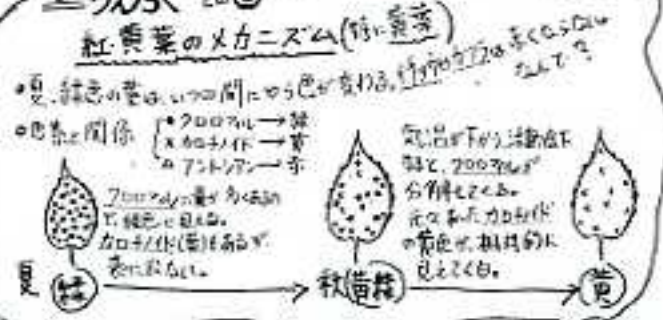 うんちく
紅・黄葉のメカニズム(特に黄葉)
•夏、緑色の葉は、いつの間にやら色が変わる。
なんで?
•色素と関係
•クロロフィル→緑
×カロチノイド→黄
▵アントシアン→赤
クロロフィルの量が多くあるの
で、緑色に見える。
カロチノイド(黄)もあるが、
表に出ない。
気温が下がり活動低下
すると、クロロフィルが
分解してくる。
元々あったカロチノイド
の黄色が、相対的に
見えてくる。
夏 緑
秋 黄緑
黄